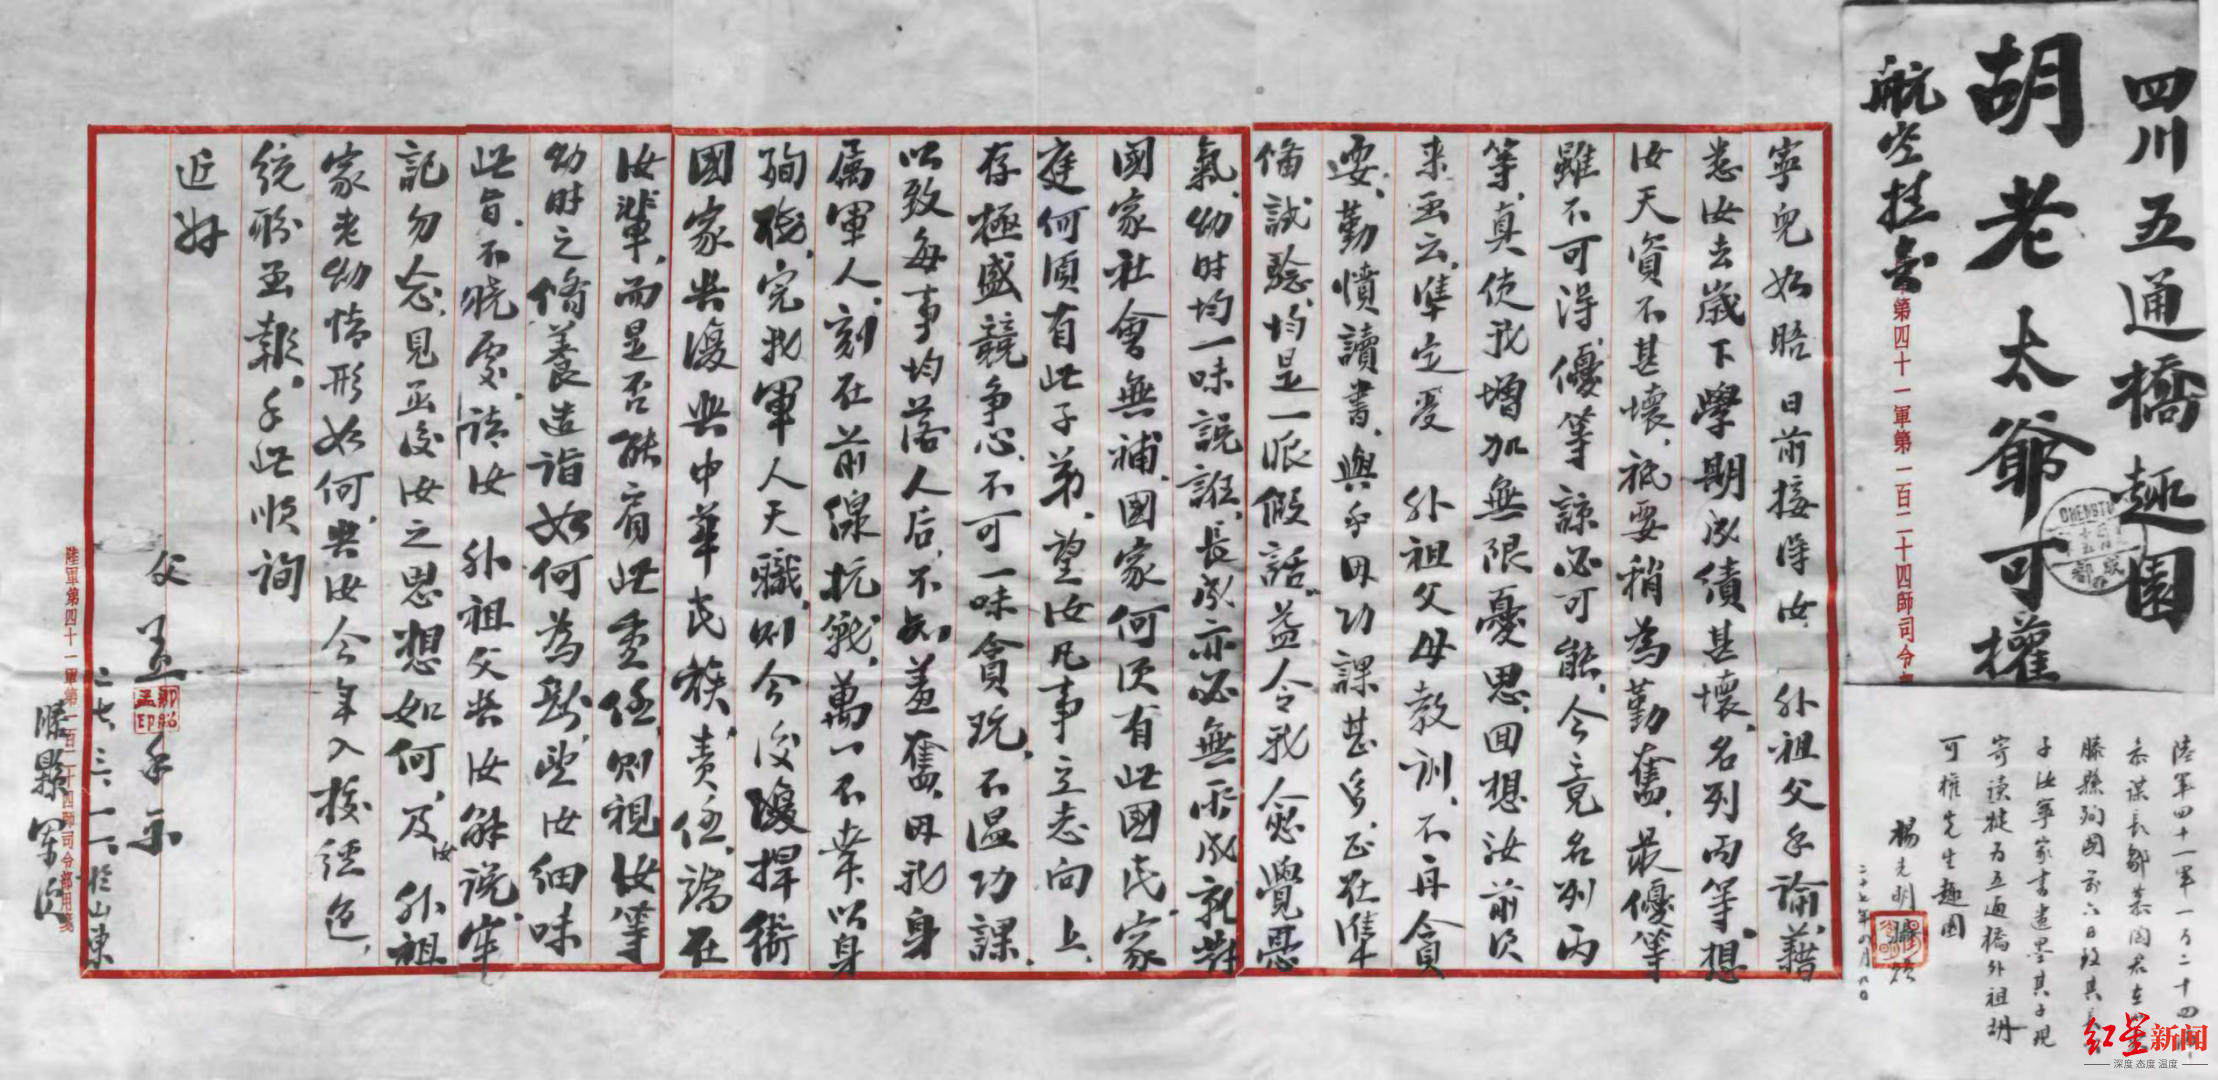 四川五通橋趣園
胡老太爺可權
航空挂号
第四十一軍第一百二十四師司令
CHENGTU
成都
寧兒如晤日前接得汝外祖父手諭藉
悉汝去歲下學期成績甚壞名列丙等想
汝天資不甚壞祇要稍為勤奮最優等
雖不可得優等諒必可能今竟名列丙
等真使我增加無限憂思回想汝前次
來函云準定受外祖父母教訓不再貪
耍勤憤讀書與手母功課甚多正在準
備試驗均是一派假話益令我人愈覺憂
氣幼時均一味說誑長成亦必無所成就對
國家社會無補國家何須有此國民家
庭何須有此子弟望汝凡事立志向上
存極盛競爭心不可一味貪玩不溫功課
以致每事均落人后不知羞奮母我身
屬軍人刻在前線抗戰萬一不幸以身
殉職完我軍人天職則今後復捍衛
國家與復興中華民族責任端在
汝輩而是否能肩此重任則視汝等
幼時之脩養造詣如何為斷望汝細味
此旨不曉處請汝外祖父與汝解說牢
記勿忘見函後汝之思想如何及汝外祖
家老幼情形如何與汝今年入校經過
統盼函報手此順詢
近好
父孟手示
二七、三、一一、於山東
滕縣軍次
陸軍第四十一軍第一百二十四師司令部用箋
陸軍四十一軍一百二十四師
參謀長鄒慕陶君在
滕縣殉國前六日致其長
子汝寧家書遺墨其子現
寄讀犍為五通橋外祖胡
可權先生趣園
楊克明
二十七年六月八日
红星新闻
深度 态度 温度